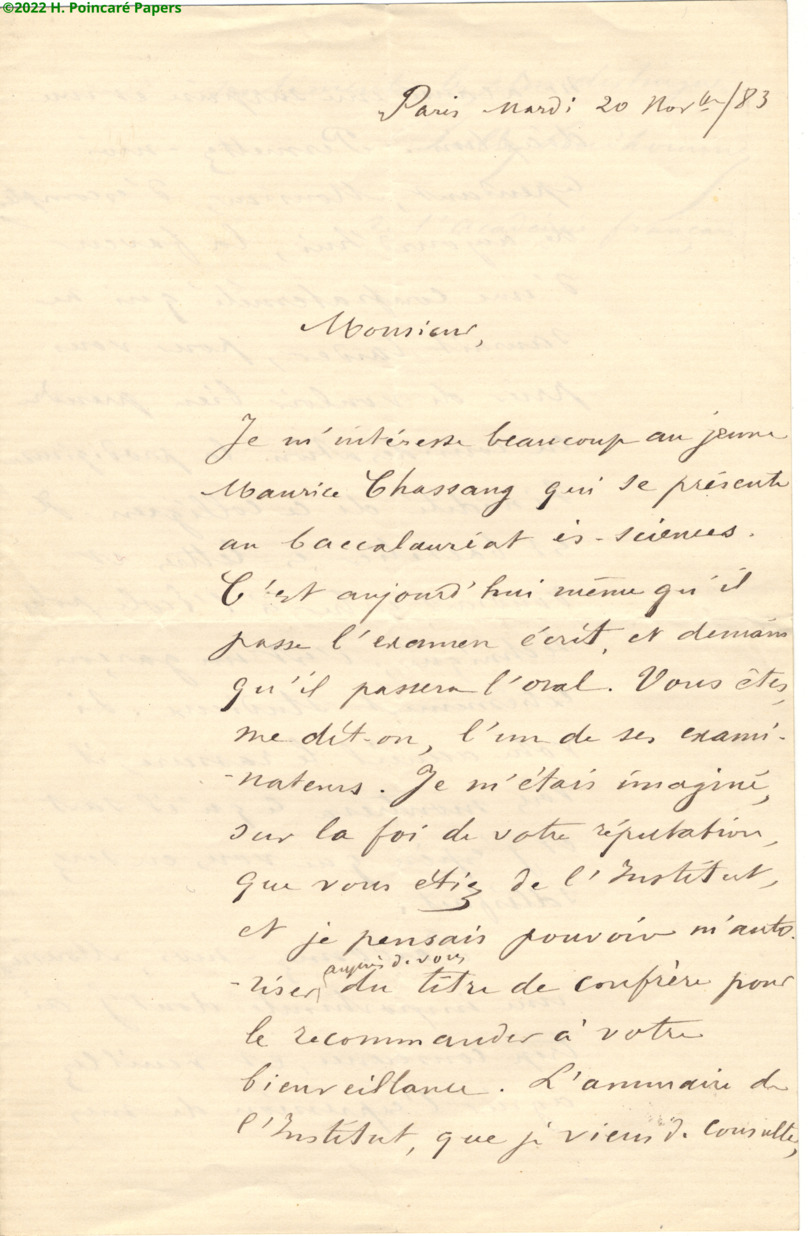 ©2022 H. Poincaré Papers
Paris Mardi 20 Novbre/83
Monsieur,
Je m'intéresse beaucoup au jeune
Maurice Chassang qui se présente
au baccalauréat ès-sciences.
C'est aujourd'hui même qu'il
passe l'examen écrit, et demain
qu'il passera l'oral. Vous êtes,
me dit-on, l'un de ses exami-
-nateurs. Je m'étais imaginé,
sur la foi de votre réputation,
que vous étiez de l'Institut,
et je pensais pouvoir m'auto-
auprès de vous
-riser du titre de confrère pour
le recommander à votre
bienveillance. L'annuaire de
l'Institut, que je viens de consulter,